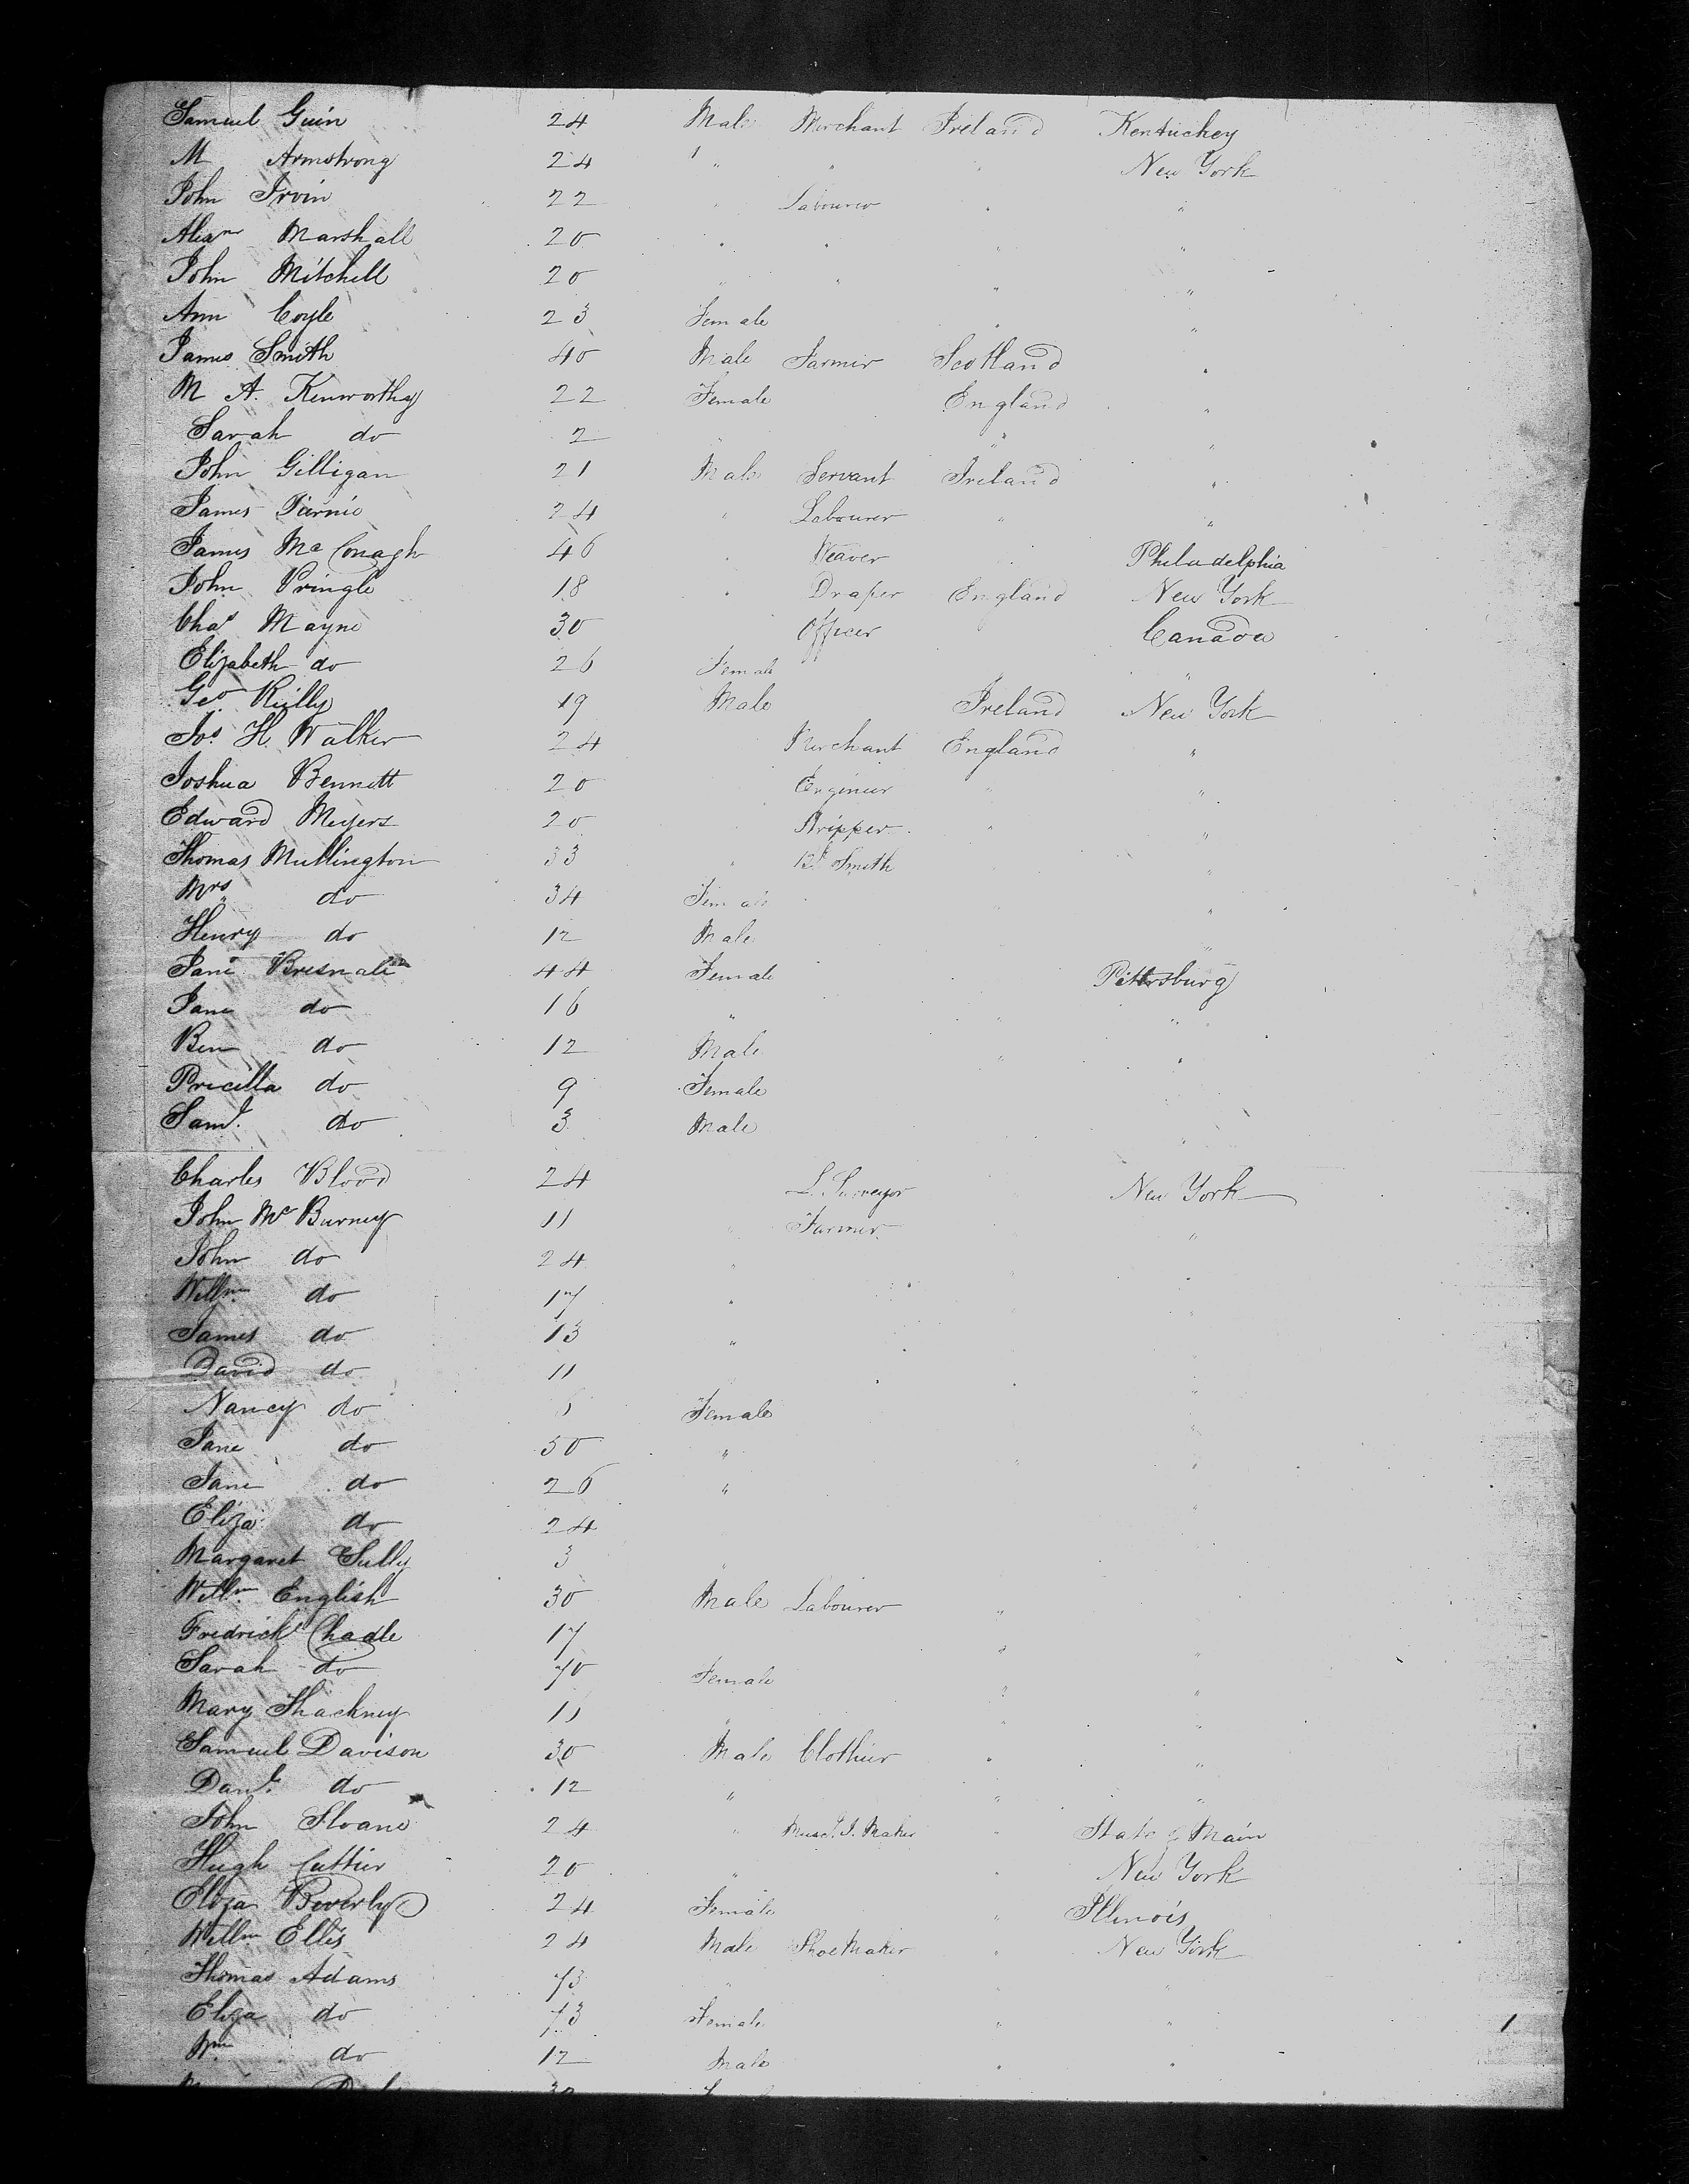 Samuel Guin 24 Male Merchant Ireland Kentuckey
M Armstrong 24 " " " New York
John Irvin 22 " Labourer " "
Alexr Marshall 20 " " " "
John Mitchell 20 " " " "
Ann Coyle 23 Female " "
James Smith 40 Male Farmer Scotland "
M A. Kenworthy 22 Female England "
Sarah do 2 " " "
John Gilligan 21 Male Servant Ireland "
James 24 " Labourer " "
James Mc Conagh 46 " Weaver " Philadelphia
John Pringle 18 " Draper England New York
Chas Mayne 30 Officer Canada
Elizabeth do 26 Female "
Geo Reilly 19 Male Ireland New York
Jos. H. Walker 24 Merchant England "
Joshua Bennett 20 Engineer " "
Edward Meyers 20 " "
Thomas Mullington 33 " Bl Smith "
Mrs do 34 Female "
Henry do 12 Male "
Jane 44 Female Petersburg
Jane do 16 " " "
Ben do 12 Male " "
Precilla do 9 Female
Saml. do 3 Male "
Charles Blood 24 L. Surveyor New York
John Mc Burney 11 " Farmer "
John do 24 " "
Willm. do 17 " "
James do 13 "
David do 11 "
Nancy do Female "
Jane do 50 " "
Jane do 26 " "
Eliza do 24
Margaret Sully 3 "
Willm. English 30 Male Labourer "
Fredrick Chadle 17 " "
Sarah do 70 Female " "
Mary Shackney 11 " " "
Samuel Davison 30 Male Clothier " "
Danl. do 12 " " "
John Sloane 24 " Musl. I. Maker " State of Main
Hugh 20 " " New York
Eliza Beverly 24 Female " Illinois
Willm Ellis 24 Male ShoeMaker " New York
Thomas Adams 73 " " "
Eliza do 73 Female " "
Wm. do 12 Male " "